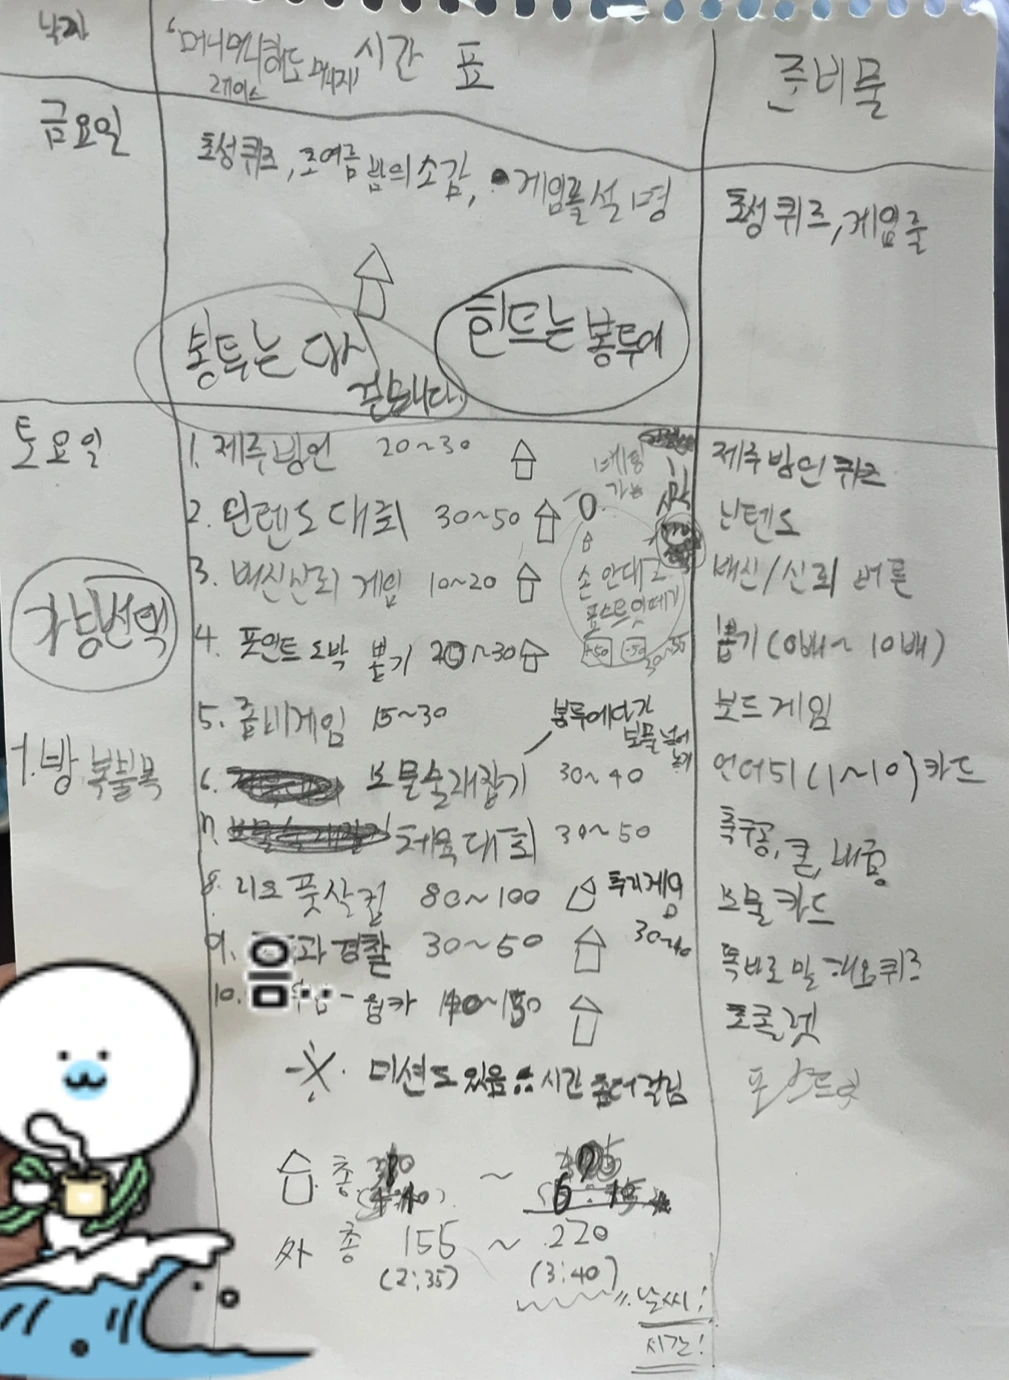 날짜
시간 표
레이스
준비물
금요일
초성퀴즈, 초여름 밤의 소감, 게임룰 설명
초성퀴즈, 게임룰
봉투는 다
힌트는 봉투에
토요일
1. 제주방언 20~30
제주방언 퀴즈
2. 닌텐도 대회 30~50
닌텐도
3. 배신신뢰 게임 10~20
배신/신뢰 버튼
손 안대고
포스트잇떼기
4. 포인트 도박 뽑기 20~30
+50 -50
뽑기 (0배~10배)
5. 좀비게임 15~30
봉투에다가
보물 넣어
놓기
보드게임
7. 방 복불복
6. 보물술래잡기 30~40
언어 5 (1~10) 카드
7. 체육대회 30~50
축구공, 콘,
8. 리조 풋살컵 80~100
추리게임
30~40
보물카드
9. 과 경찰 30~50
음..
똑바로 말해요 퀴즈
10. - 웡카
초콜렛
※. 미션도 있음 ∴ 시간 좀 더 걸림
포스트잇
총 ~
外 총 155 ~ 220
(2:35) (3:40)
날씨!
시간!